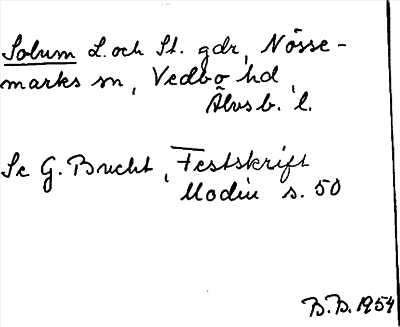 Solum L. och St. gdr, Nösse-
marks sn, Vedbo hd,
Älvsb. l.
Se G. Bucht, Festskrift
Modin s. 50
B.B. 1954